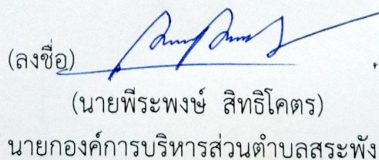 (ลงชื่อ)
(นายพีระพงษ์ สิทธิโคตร)
นายกองค์การบริหารส่วนตำบลสระพัง